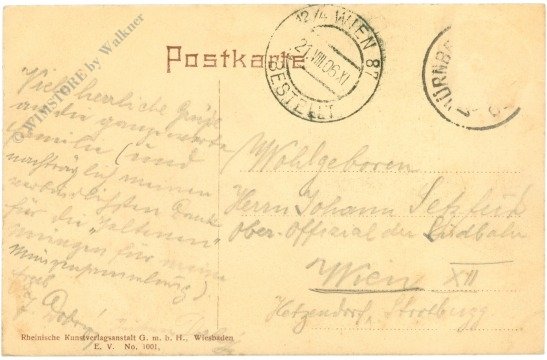 Postkarte
12/4 WIEN 87
27.VIII.06.XI
BESTELLT
NÜRNB
©WIMSTORE by Walkner
Viele herrliche Grüße
an die ganze werte
Familie (und
nachträglich meinen
verbindlichsten Dank
für die "seltenen"
für meine
Münzensammlung)
Wohlgeboren
Herrn Johann
Ober-Offizial der Südbahn
Wien XII
Hetzendorf,
Rheinische Kunstverlagsanstalt G. m. b. H., Wiesbaden
E. V. No. 1001.